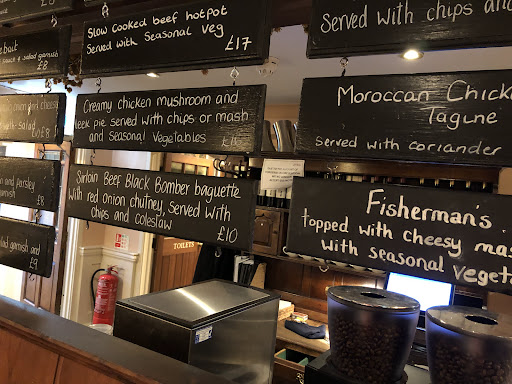 Slow cooked beef hotpot
Served with Seasonal Veg
£17
Creamy chicken mushroom and
leek pie served with chips or mash
and Seasonal Vegetables
Sirloin Beef Black Bomber baguette
with red onion chutney, served with
chips and coleslaw
£10
served with chips and
Moroccan Chick
Tagine
served with coriander
Fisherman's
topped with cheesy mas
with seasonal vegeta
& salad garnish
£8
and cheese
with salad
£8
and parsley
£8
garnish and
£9
TOILETS